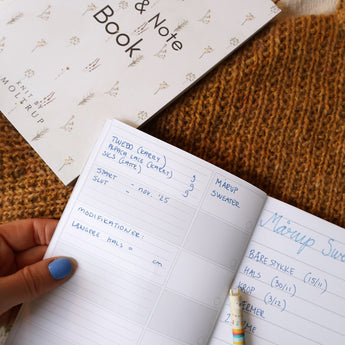 & Note
Book
KNIT BY
MOLTRUP
TWEED (KARRY)
ALPACA LACE (KARRY) g
SILK (LATTE) g
g
START - nov. '25
SLUT -
MODIFIKATIONER:
LÆNGERE HALS = cm
MÅRUP
SWEATER
Mårup Swe
BÆRESTYKKE (15/11)
HALS (30/11)
KROP (3/12)
ÆRMER